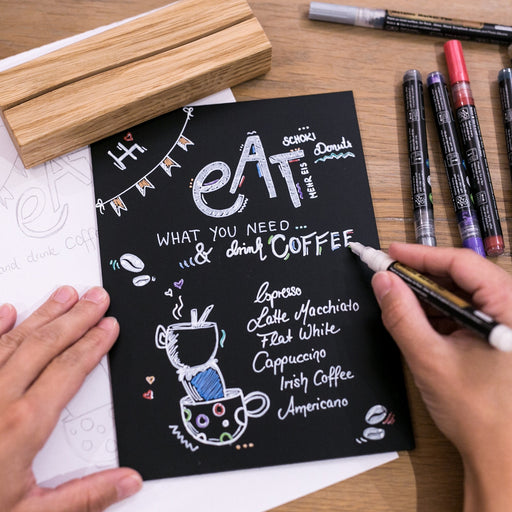 Hi
eAT
SCHOKI
Donuts
MEHR EIS
WHAT YOU NEED ...
& drink COFFEE
Espresso
Latte Macchiato
Flat White
Cappuccino
Irish Coffee
Americano
and drink Coff